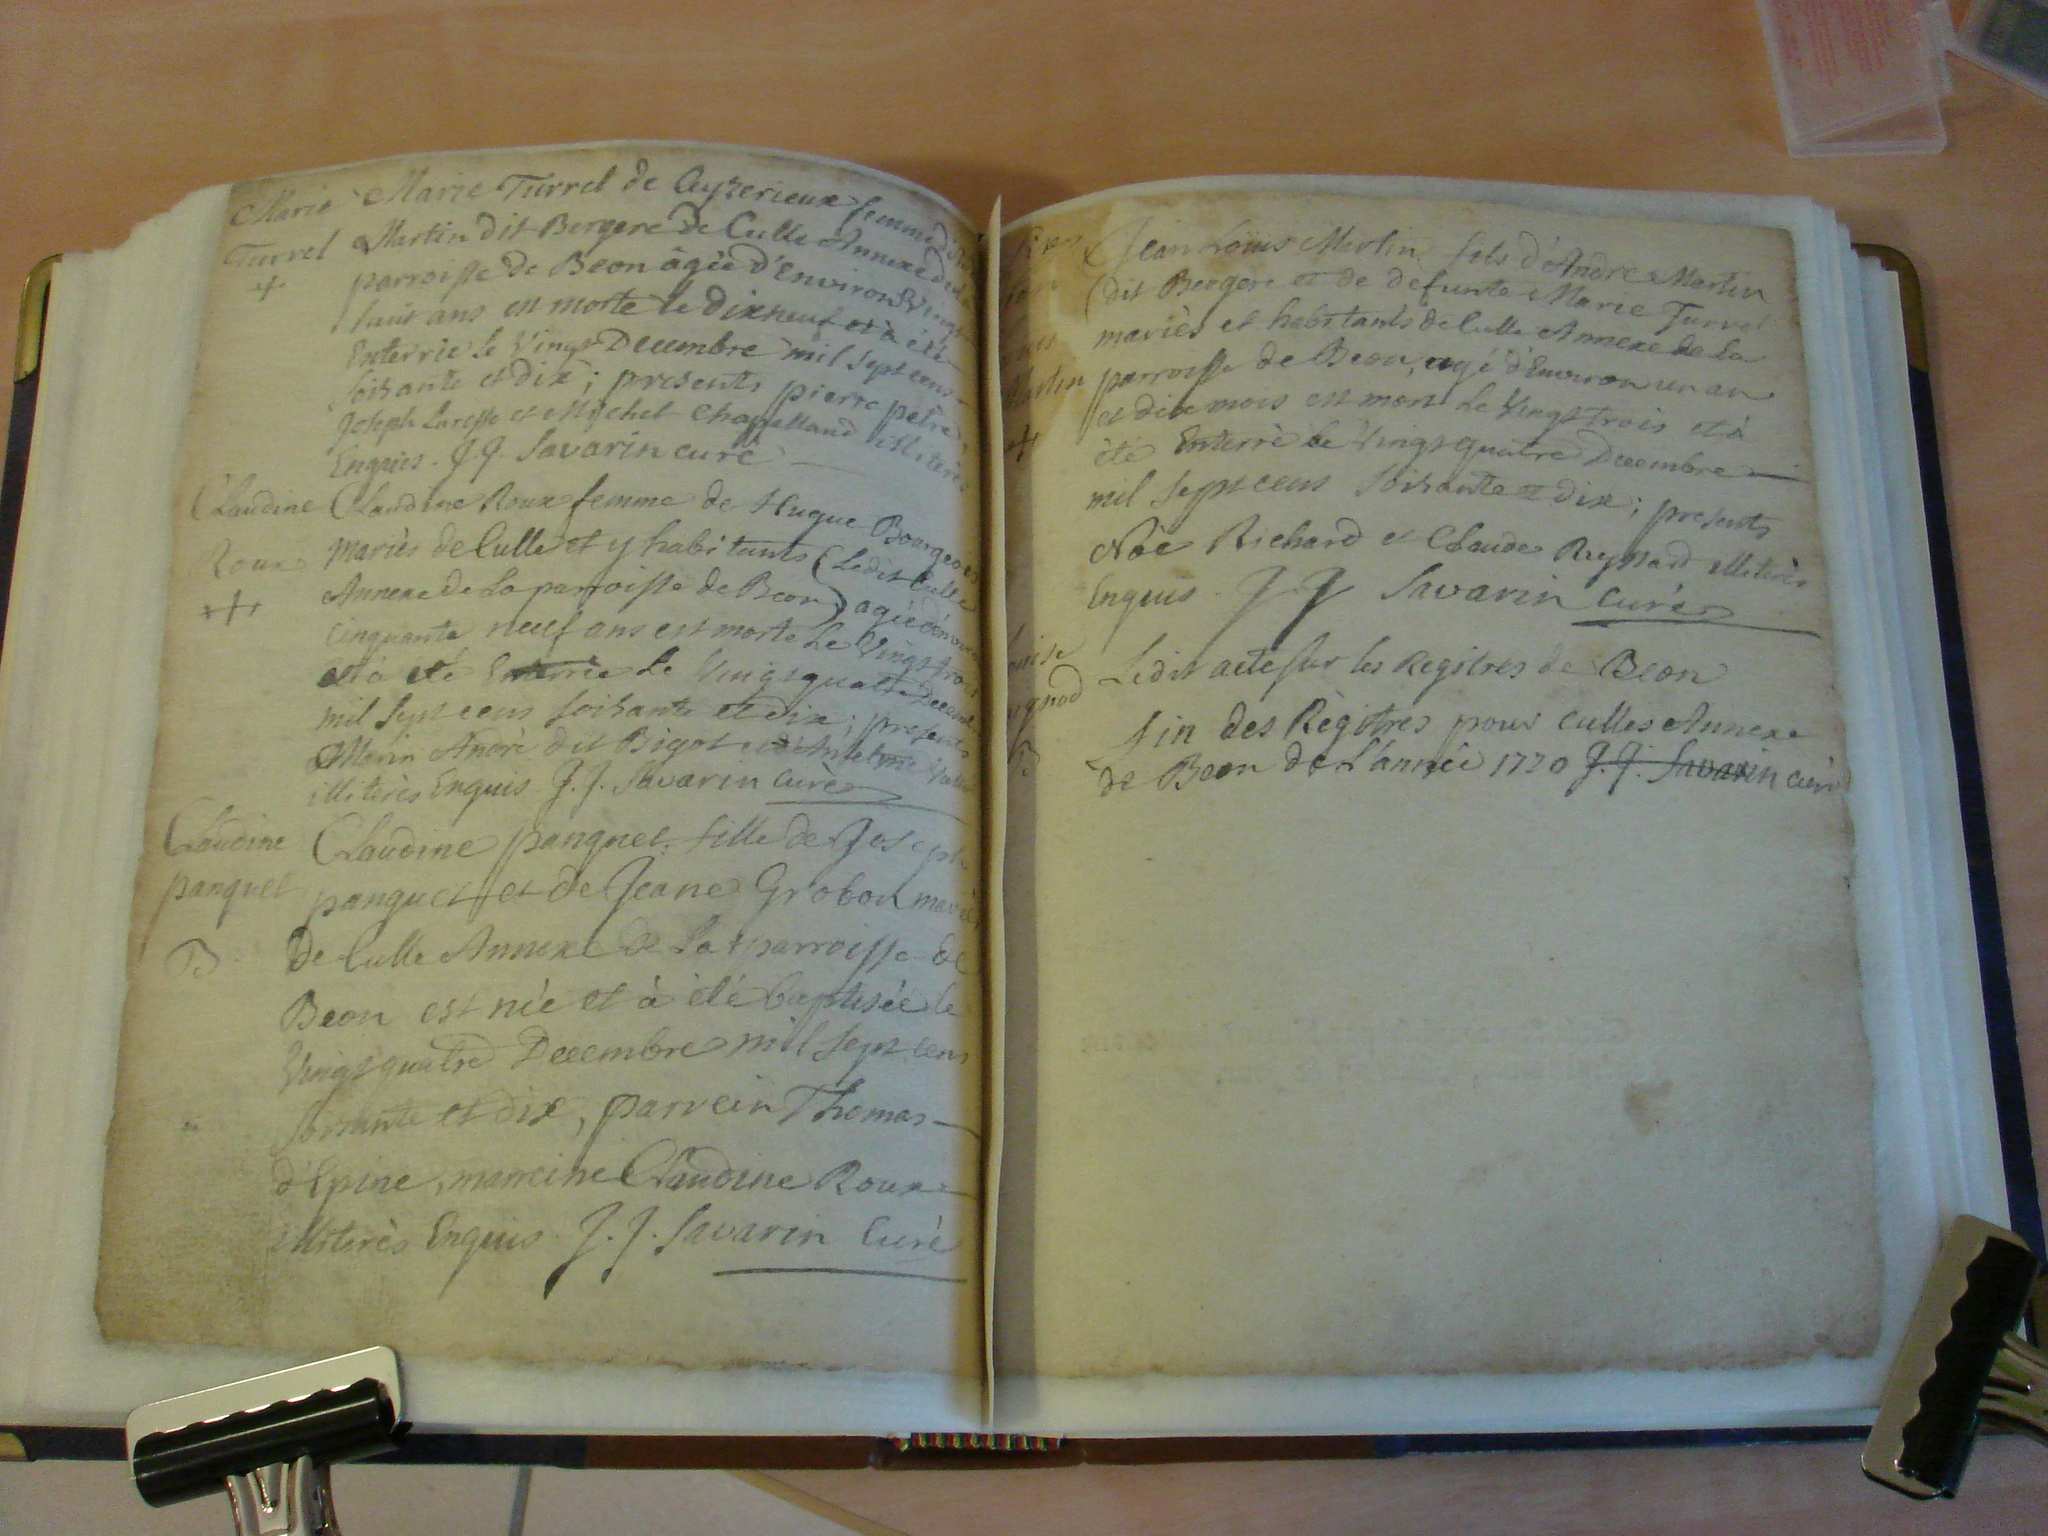 Marie Marie Turrel de Ceyzerieux femme
Turrel Martin dit Bergere de Culle Annexe de la
+ parroisse de Beon âgée d'Environ Vingt
huit ans est morte le dixneuf et à été
Enterrée le Vingt Decembre mil sept cens
soixante et dix; presents pierre petre
Joseph Laresse et Michel Chapelland illiterès
Enquis. J. J. Savarin curé
Claudine Claudine Roux femme de Hugue Bourgeois
Roux mariès de Culle et y habitants (Ledit Culle
+ Annexe de La parroisse de Beon) agée d'environ
cinquante neuf ans est morte Le Vingt trois
et à eté Enterrée Le Vingt quatre Decembre
mil sept cens soixante et dix; presents
Marin Andrè dit Bigot et Antelme
illiterès Enquis. J. J. Savarin curè
Claudine Claudine panguet fille de Joseph
panguet panguet et de Jeane Grobon mariès
B De Culle Annexe de La parroisse de
Beon est née et à été baptisée le
Vingt quatre Decembre mil sept cens
soixante et dix, parrein Thomas
d'Epine, marreine Claudine Roux
illiterès Enquis. J. J. Savarin Curé
Jean Loüis Martin fils d'Andre Martin
(dit Bergere et de defunte Marie Turrel
mariès et habitants de Culle Annexe de La
Martin parroisse de Beon, agé d'Environ un an
et dix mois est mort Le Vingt trois et à
+ été Enterré le Vingt quatre Decembre
mil sept cens soixante et dix; presents
Noë Richard et Claude Reynard illiterès
Enquis. J. J. Savarin Curé
Ledit acte sur les Registres de Beon
fin des Règistres pour Culles Annexe
B de Beon de L'année 1770 J. J. Savarin curé